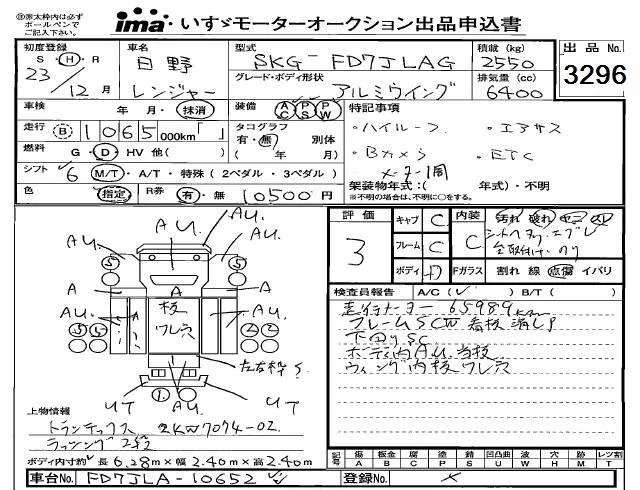 ㊟黒太枠内は必ず
ボールペンで
ご記入下さい。
ima いすゞモーターオークション出品申込書
初度登録 車名 型式 積載(kg) 出品No.
S・H・R 日野 SKG-FD7JLAG 2550
23 グレード・ボディ形状 排気量(cc) 3296
12月 レンジャー アルミウイング 6400
車検 年・月・抹消 装備 AC PS PW 特記事項
走行 B 1065 000km「 」 タコグラフ ・ハイルーフ ・エアサス
有・無 別体
燃料 G・D・HV 他( ) ( 年 月) ・Bカメラ ・ETC
シフト 6 M/T・A/T・特殊(2ペダル・3ペダル)
架装物年式:( 年式)・不明
色 指定 R券 有・無 10500円 ※不明の場合は、不明に○をする。
AU. AU. AU.
評価 3
キャブ C 内装 C 汚れ 破れ
フレーム C
ボディ D Fガラス 割れ 線 点傷 イバリ
A A
板
ワレ穴
AU. AU.
左右枠S
UT AU. UT
検査員報告 A/C( ) B/T( )
走行メーター65989km
フレームSCW 看板消しP
下回りSC
ボディ内AU.当板
ウィング内板ワレ穴
上物情報
トランテックス 2KW7074-02
ラッシング2段
ボディ内寸約 長6.28m×幅2.40m×高2.40m
記号 傷 A 板金 B 腐 C 塗 P 錆 S 凹凸曲 U 波 W 穴 H 跡 M レツ割 T
車台No. FD7JLA-10652 登録No. ×